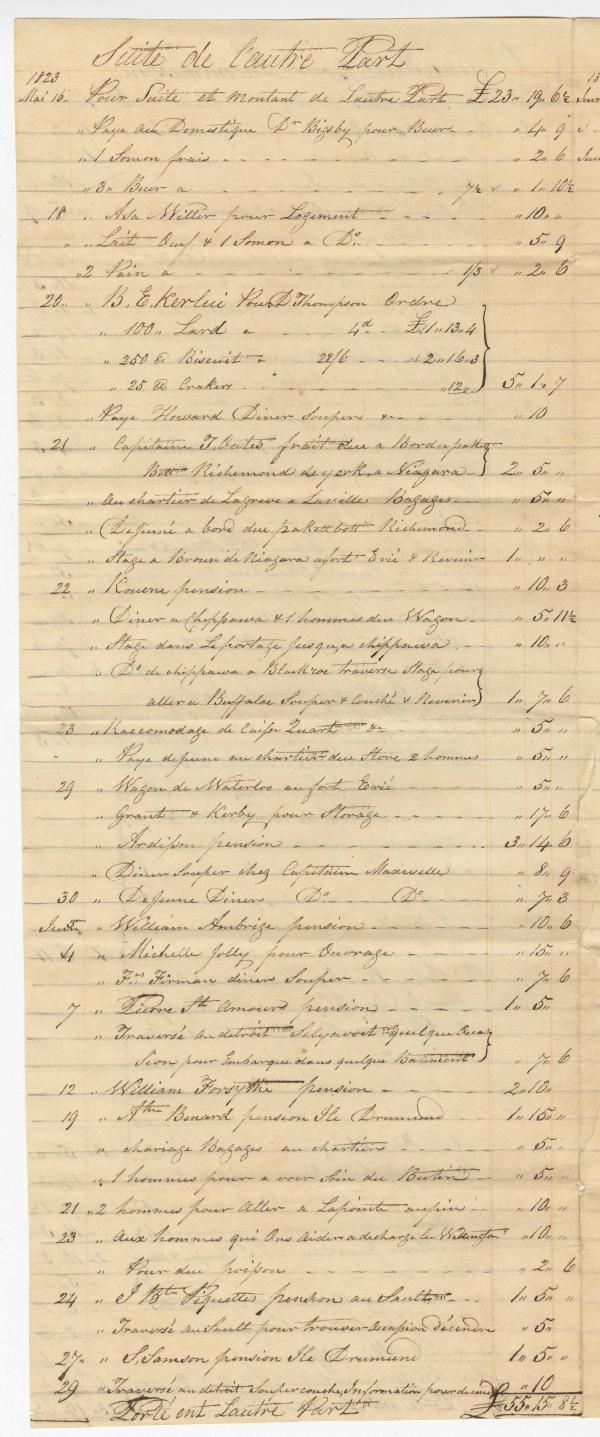 Suite de l'autre Part
1823
Mai 16 „ Pour Suite et Montant de Lautre Part £ 23 „ 19 „ 6½
„ Paye au Domestique Dr Bigsby pour Buer „ 4 „ 9
„ 1 Somon frais „ 2 „ 6
„ 3 „ Buer a 7½ „ 1 „ 10½
18 „ Asa Willir pour Logement „ 10 „ „
„ „ Lait Oeuf & 1 Somon a Do „ 5 „ 9
„ 2 Pain a 1/3 „ 2 „ 6
20 „ „ B. E. Kerlui Pour D Thompson Ordre
„ 100 „ Lard a 4d £1 „ 13 „ 4
„ 250 lb Biscuit a 22/6 2 „ 16 „ 3
„ 25 lb Crakers „ 12 „ 5 „ 1 „ 7
„ Paye Howard Diner Souper &c „ 10
21 „ Capitaine T. Oates frait due a Bordu pakett
Bott Richemond de york a Niagara 2 „ 5 „ „
„ Au chartier de Lagreve a Laville Bagages „ 5 „ „
„ Dejeuné a bord du pakett bott Richemond „ 2 „ 6
„ Stage a Broun de Niagara a fort Erié & Revenir 1 „ „ „
22 „ Rouene pension „ 10 „ 3
„ Diner a Chippawa & 1 hommes du Wagon „ 5 „ 11½
„ Stage dans Leportage Jusqua chippawa „ 10 „ „
„ Do de chippawa a Black roc traverse Stage pour
aller a Buffalae Souper & Couché & Revenir 1 „ 7 „ 6
23 „ Raccomodage de Caisse Quart &c „ 5 „ „
„ Paye dejeune au chartier du Store 2 hommes „ 5 „ „
29 „ Wagon de Waterloo au fort Erié „ 5 „
„ Grant & Kerby pour Storage „ 17 „ 6
„ Ardisson pension 3 „ 14 „ 6
„ Diner Souper chez Capitaine Maxwelle „ 8 „ 9
30 „ Dejeune Diner Do Do „ 7 „ 3
„ William Ambrige pension „ 10 „ 6
4 „ Michelle Jolly pour Ouvrage „ 15 „ „
„ Fs Firman diner Souper „ 7 „ 6
7 „ Pierre St Amour pension 1 „ 5 „
„ Traversé au detroit Silyavoit quelque Oca
sion pour Embarque dans quelque Batiment „ 7 „ 6
12 „ William Forsythe pension 2 „ 10 „
19 „ Ate Benard pension Ile Drumund 1 „ 15 „ „
„ chariage Bagages au chartiers „ 5 „ „
„ 1 hommes pour a voir Soin du Butin „ 5 „ „
21 „ 2 hommes pour Aller a Lapointe aupin „ 10 „ „
23 „ Aux hommes qui Ons Aider a decharge le Wedington „ 10 „ „
„ Pour du poison „ 2 „ 6
24 „ J Bte Piquette pension au Sault 1 „ 5 „ „
„ Traversé au Sault pour trouver Ocasion décendre „ 5 „
27 „ „ S. Samson pension Ile Drumund 1 „ 5 „ „
29 „ Traversé au detroit Souper couche, Information pour „ 10
Porté ent Lautre Part £ 55 „ 15 „ 8½